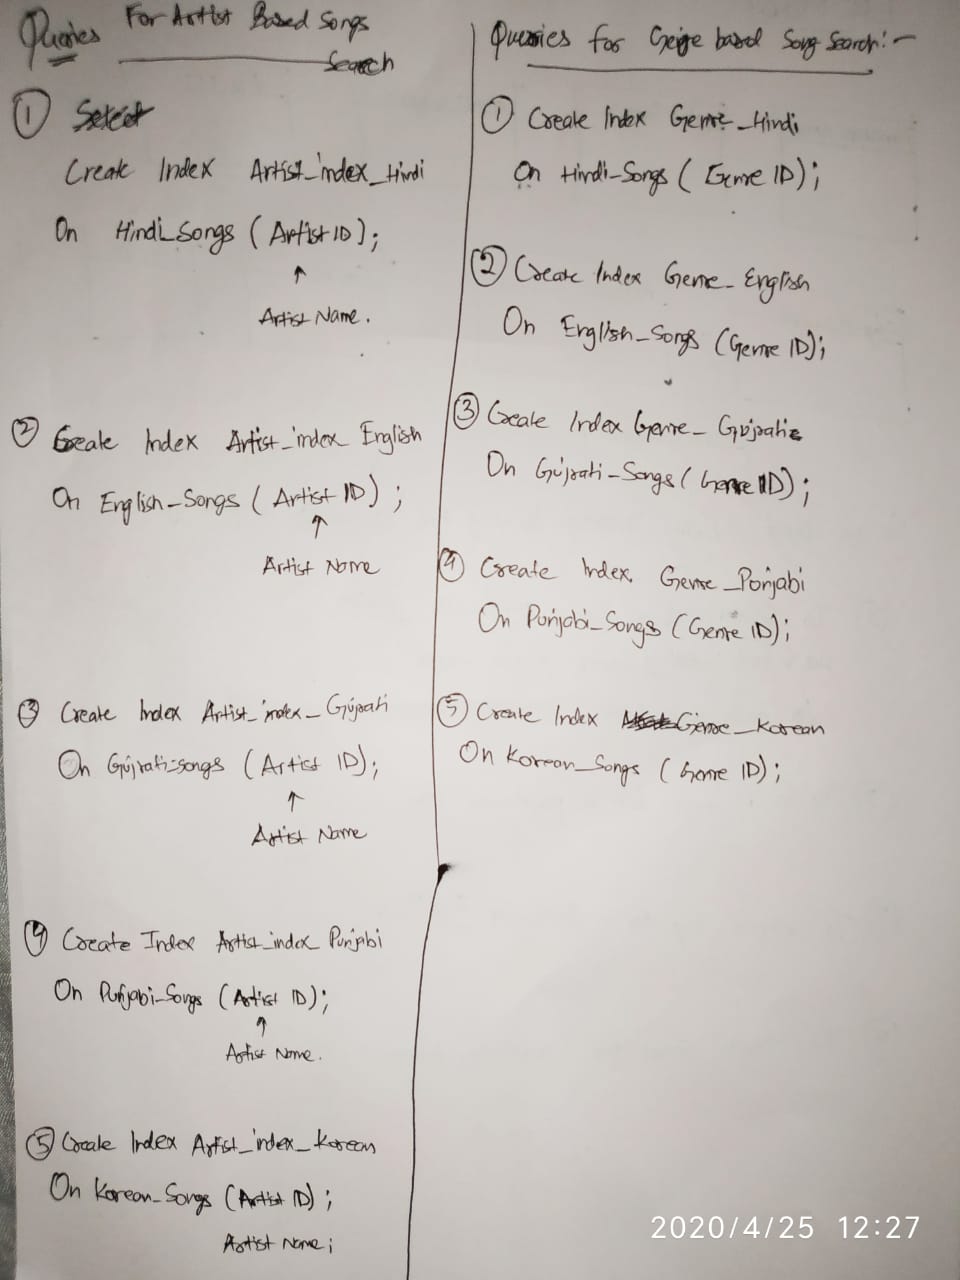 Queries For Artist Based Songs
Search
① Select
Create Index Artist_index_Hindi
On Hindi_Songs ( Artist ID );
↑
Artist Name.
② Create Index Artist_index_English
On English_Songs ( Artist ID ) ;
↑
Artist Name
③ Create Index Artist_index_Gujrati
On Gujrati_songs ( Artist ID );
↑
Artist Name
④ Create Index Artist_index_Punjabi
On Punjabi_Songs ( Artist ID );
↑
Artist Name.
⑤ Create Index Artist_index_Korean
On Korean_Songs ( Artist ID ) ;
Artist Name;
Queries for Genre based Song Search:-
① Create Index Genre_Hindi
On Hindi_Songs ( Genre ID );
② Create Index Genre_English
On English_Songs (Genre ID);
③ Create Index Genre_Gujrati
On Gujrati_Songs ( Genre ID) ;
④ Create Index Genre_Punjabi
On Punjabi_Songs (Genre ID);
⑤ Create Index Genre_Korean
On Korean_Songs ( Genre ID) ;
2020/4/25 12:27